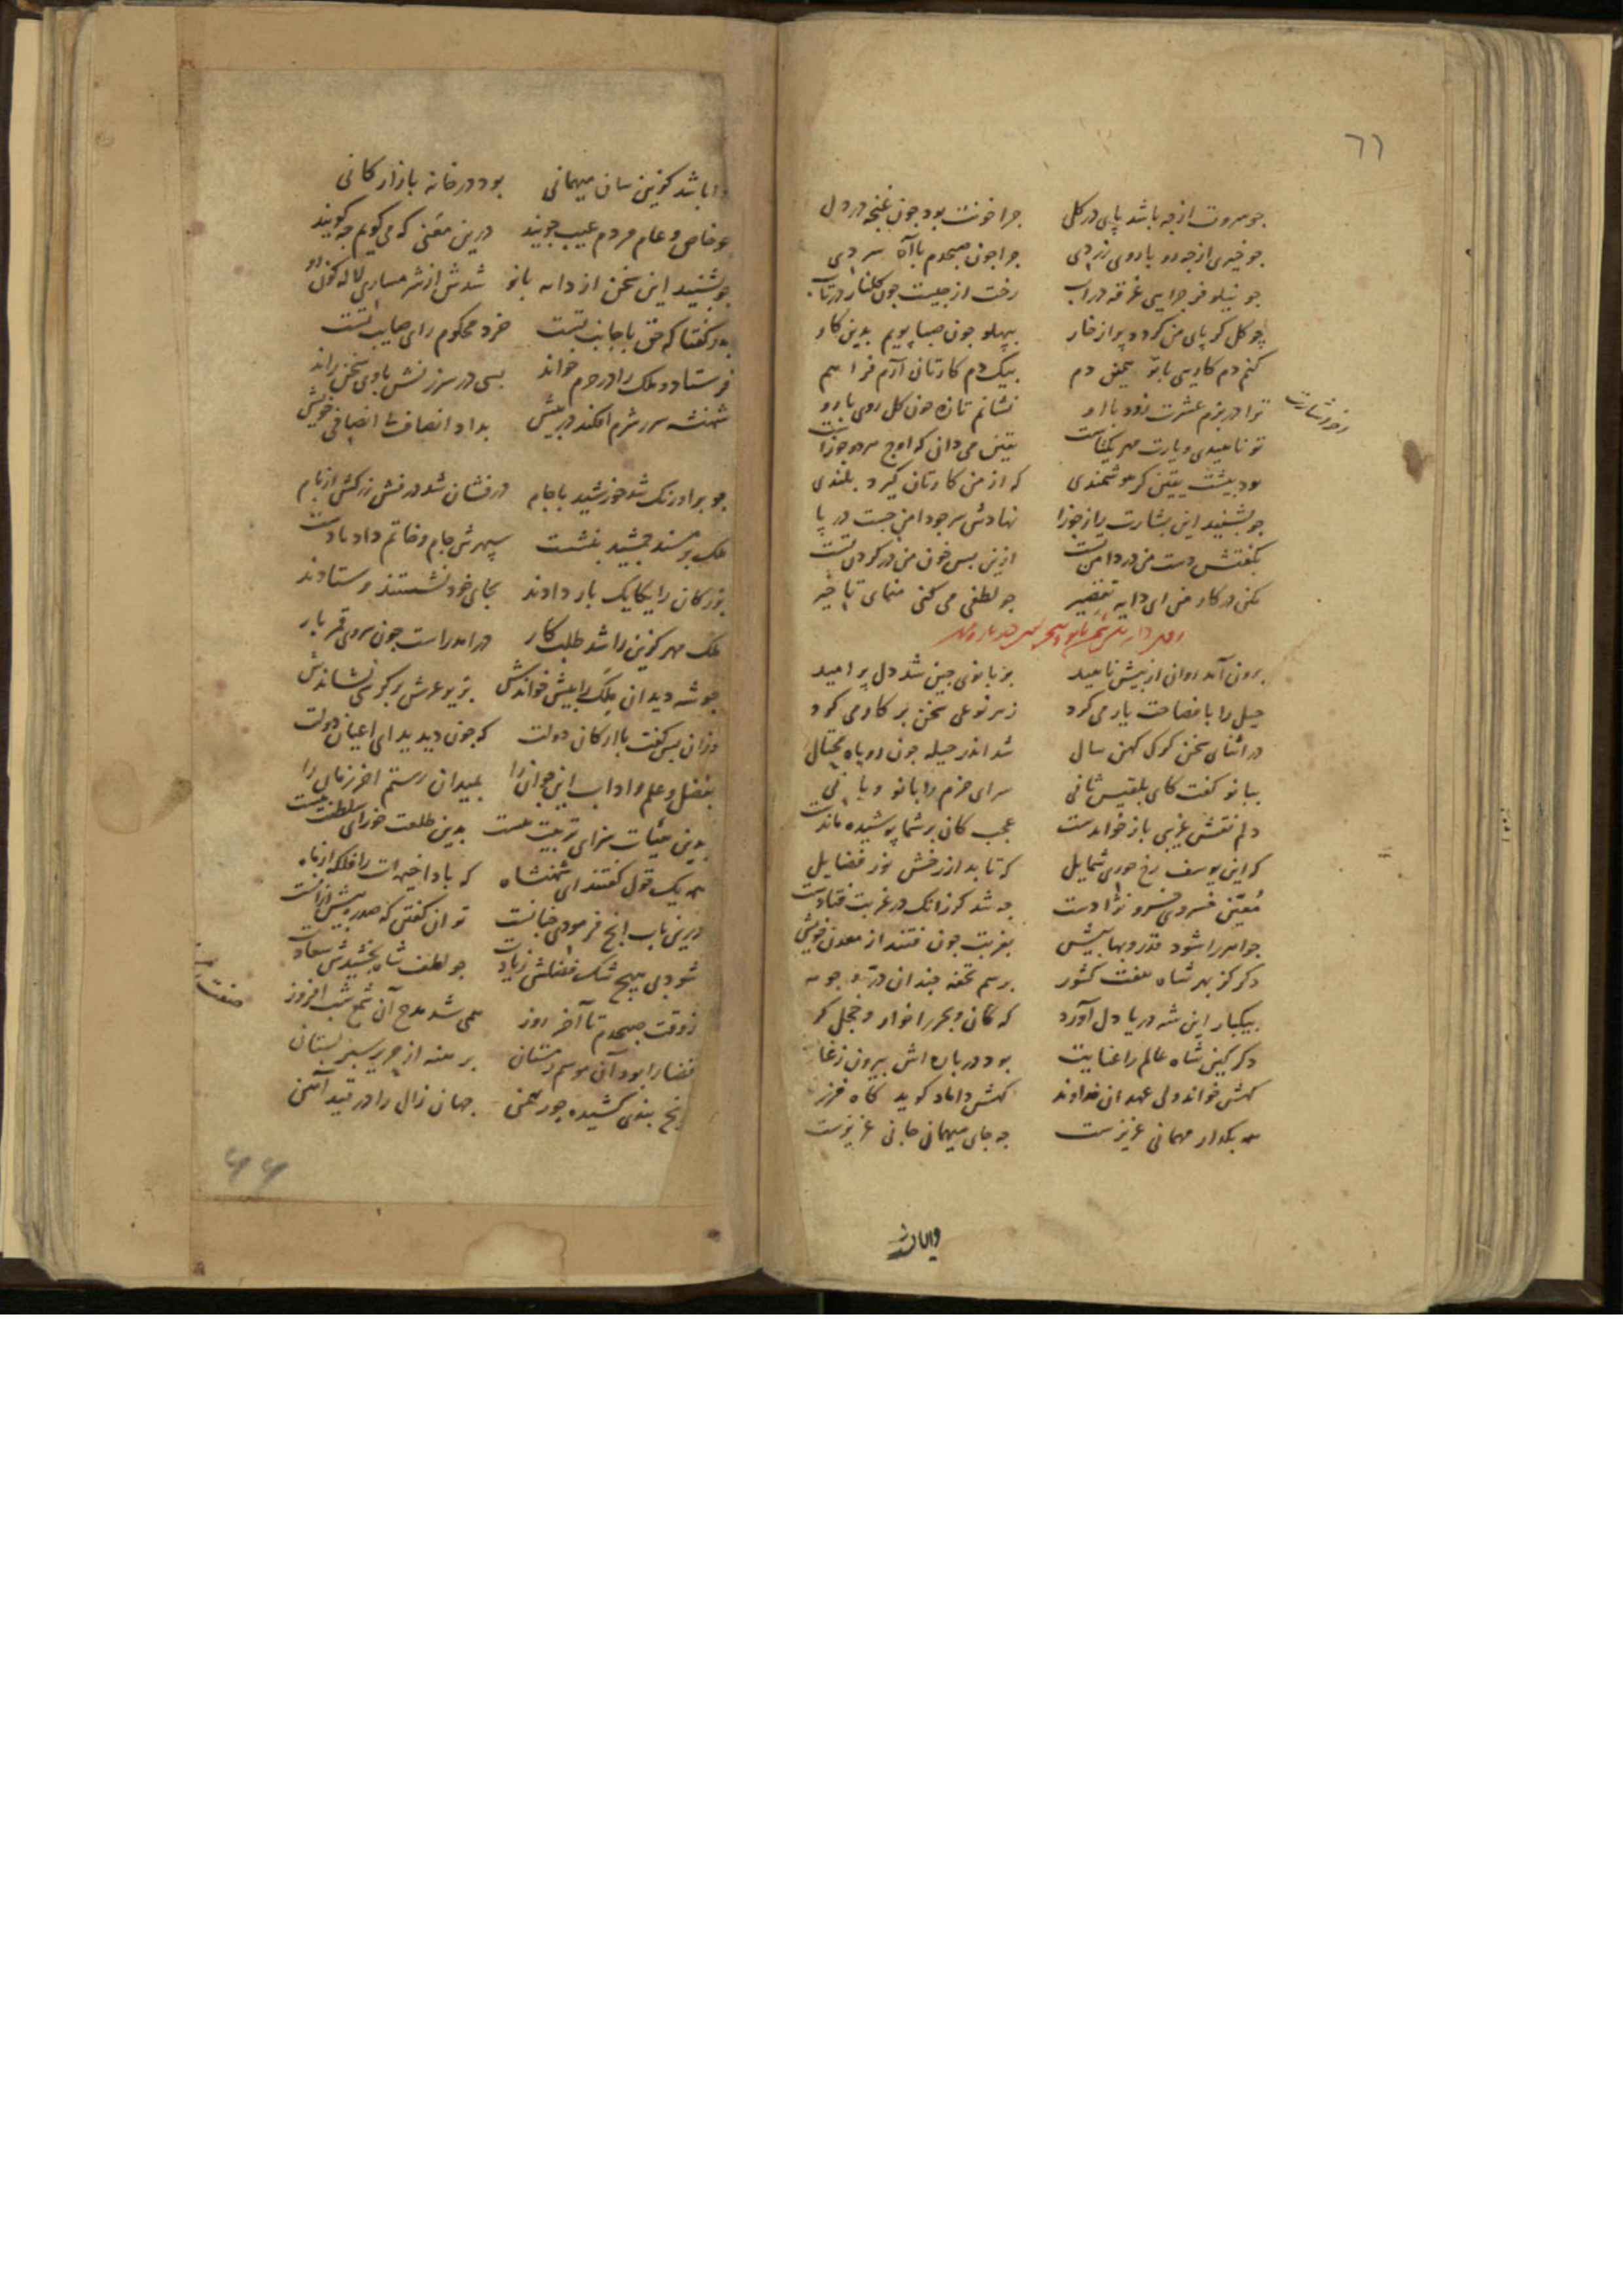 ٦٦
جو سروت از جه باشد پای در کل جرا خونت بود جون غنجه در دل
جو خیری از جه رو با روی زردی جرا جون صبحدم با آه سردی
جو نیلوفر جرایی غرقه در آب رخت از جیست جون کلنار در تاب
چو کل کر پای من کردد پر از خار بپهلو جون صبا پویم بدین کار
کنم دم کاریی با تو بیک دم کارتان آرم فراهم
ترا در بزم عشرت زود با او نشانم تازه جون کل روی با رو
تو ناهیدی و یارت مهر یکتاست یقین می دانی که اوج مهر جوزاست
بود بیشت یقین کر هوشمندی که از من کارتان کیرد بلندی
جو بشنید این بشارت را ز جوزا نهادش سر جو دامن جست در پا
بکفتش دست من در دامن تست ازین بس خون من در کردن تست
مکن در کار من ای دایه تقصیر جو لطفی می کنی منمای تاخیر
برون آمد روان از بیش ناهید بر بانوی جین شد دل پر امید
حیل را با فصاحت یار می کرد ز هر نوعی سخن بر کار می کرد
در اثنای سخن کرک کهن سال شد اندر حیله جون روباه محتال
ببانو کفت کای بلقیس ثانی سرای خرم را بانو و بانی
دلم نقش غریبی باز خواندست عجب کان بر شما پوشیده ماندست
که این یوسف رخ حوری شمایل که تابد از رخش نور فضایل
معین خسروی خسرو نژادست جه شد کر زانک در غربت فتادست
جواهر را شود قدر و بها بیش بغربت جون فتند از معدن خویش
دکر کز بهر شاه هفت کشور برسم تحفه جندان در و جوهر
بیکبار این شه دریا دل آورد که کان و بحر را خوار و خجل کرد
دکر کین شاه عالم را عنایت بود در باره اش بیرون ز غایت
کهش خواند ولی عهد ان خداوند کهش داماد کوید کاه فرزند
مه بکدار مهمانی عزیزست جه جای میهمانی جانی عزیزست
روا باشد کزین سان میهمانی بود در خانه بازارکانی
جو خاص و عام مردم عیب جویند درین معنی که می کویم جه کویند
جو بشنید این سخن از دایه بانو شدش از شرمساری لاله کون رو
بدو کفتا که حق با جانب تست خرد محکوم رای صایب تست
فرستاد و ملک را در حرم خواند بسی در سرزنش با وی سخن راند
شهنشه سر ز شرم افکند در بیش بداد انصاف نا انصافی خویش
جو بر اورنک شد خورشید با جام درفشان شد درفش زرکش از بام
ملک بر مسند جمشید بنشست سپهرش جام و خاتم داد بر دست
بزرکان را یکایک بار دادند بجای خود نشستند و ستادند
ملک مهر کزین را شد طلب کار در امد راست جون سروی قمر بار
جو شه دید ان ملک را بیش خواندش بزیر عرش بر کرسی نشاندش
وزان بس کفت با ارکان دولت که جون دیدید ای اعیان دولت
بفضل و علم و اداب این جوان را بمیدان رستم اخر زمان را
بدین هیئات سزای تربیت هست بدین طلعت خورای سلطنت هست
بیک قول کفتند ای شهنشاه که بادا خیمه ات را فلکه از ماه
درین باب انج فرمودی جنانست توان کفتن که صدره بیش از آنست
شود بی هیج شک فضلش زیادت جو لطف شاه بخشیدش سعادت
ز وقت صبحدم تا آخر روز همی شد مدح آن شمع شب افروز
قضا را بود آن موسم زمستان برهنه از حریر سبز بستان
یخ بندی کشیده جور بهمن جهان زال را در قید آهن
۶۶